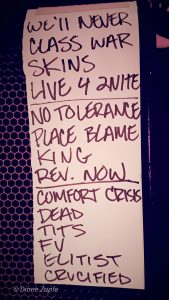 WE'LL NEVER
CLASS WAR
SKINS
LIVE 4 2NITE
NO TOLERANCE
PLACE BLAME
KING
REV. NOW
COMFORT CRISIS
DEAD
TITS
FV
ELITIST
CRUCIFIED
© Diane Zapfe